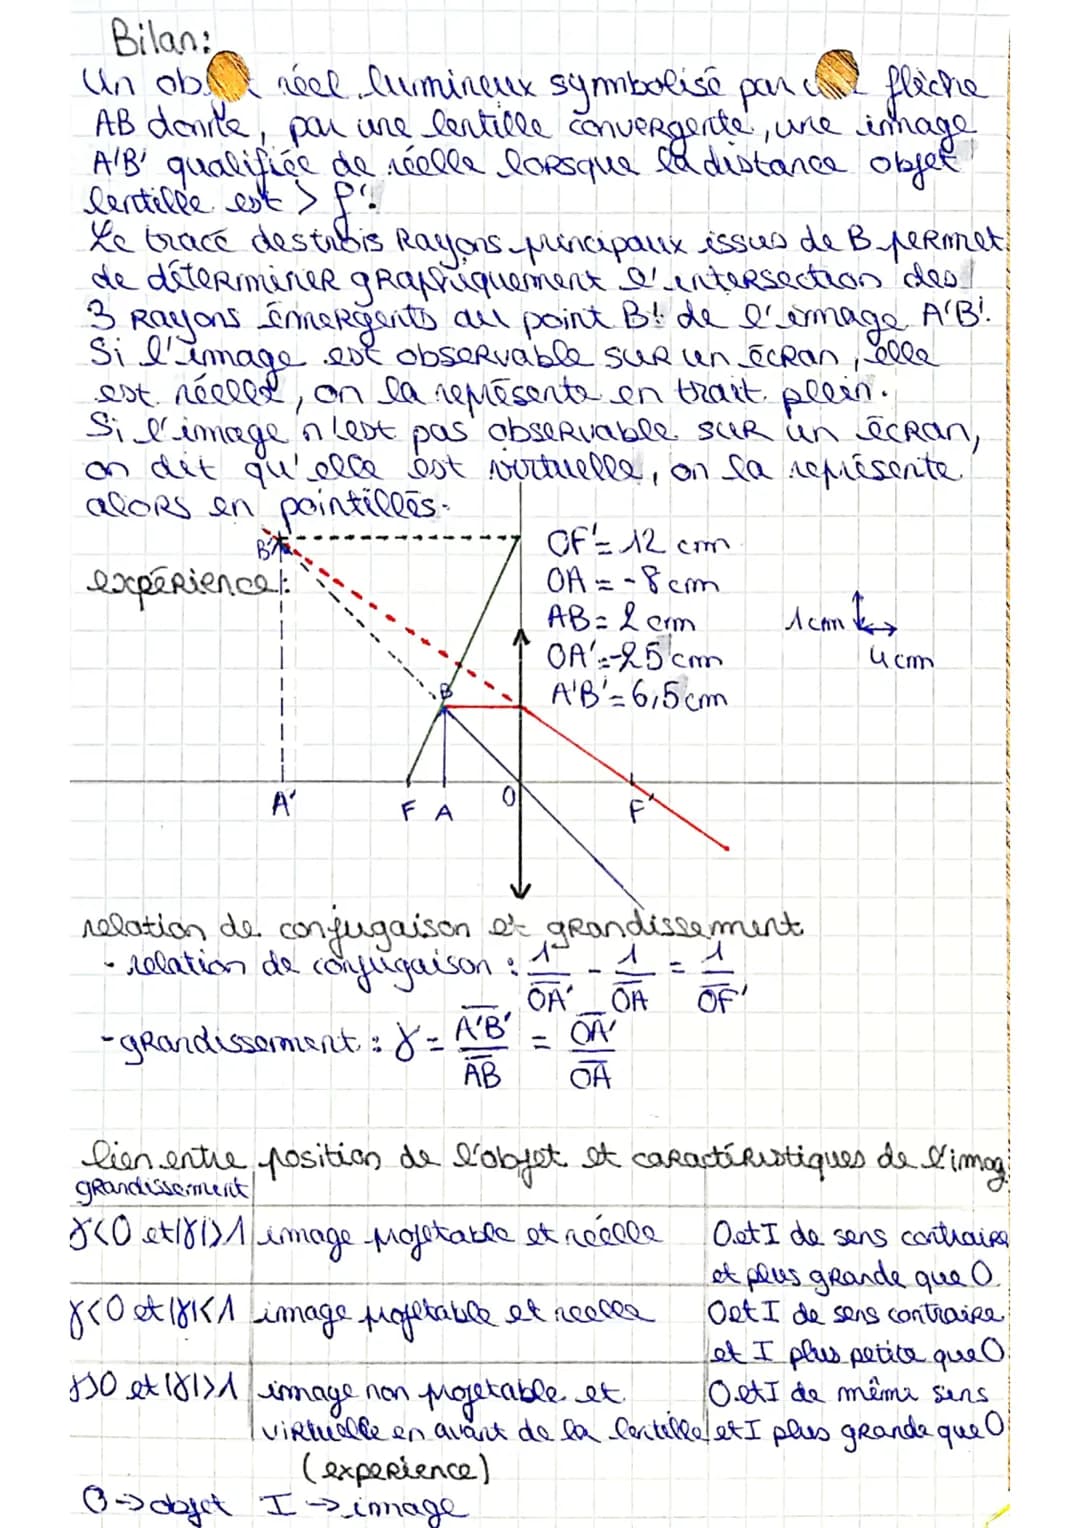 Bilan:
Un ob réel lumineux symbolisé par flèche
AB donne, par une lentille convergente, une image
A'B' qualifiée de réelle lorsque la distance objet
lentille est > f'.
Le tracé des trois Rayons principaux issus de B permet
de déterminer graphiquement l'intersection des
3 Rayons émergents au point B' de l'image A'B'.
Si l'image est observable sur un écran, elle
est réelle, on la représente en trait plein.
Si l'image n'est pas observable sur un écran,
on dit qu'elle est virtuelle, on la représente
alors en pointillés.
expérience:
B'
B
A' F A O F'
OF' = 12 cm
OA = -8 cm
AB = 2 cm
OA' = -25 cm
A'B' = 6,5 cm
1 cm
4 cm
relation de conjugaison et grandissement
- relation de conjugaison : 1/OA' - 1/OA = 1/OF'
- grandissement : γ = A'B'/AB = OA'/OA
lien entre position de l'objet et caractéristiques de l'imag
grandissement
γ<0 et |γ|>1 image projetable et réelle O et I de sens contraire
et plus grande que O
γ<0 et |γ|<1 image projetable et réelle O et I de sens contraire
et I plus petite que O
γ>0 et |γ|>1 image non projetable et O et I de même sens
virtuelle en avant de la lentille et I plus grande que O
(experience)
O → objet I → image